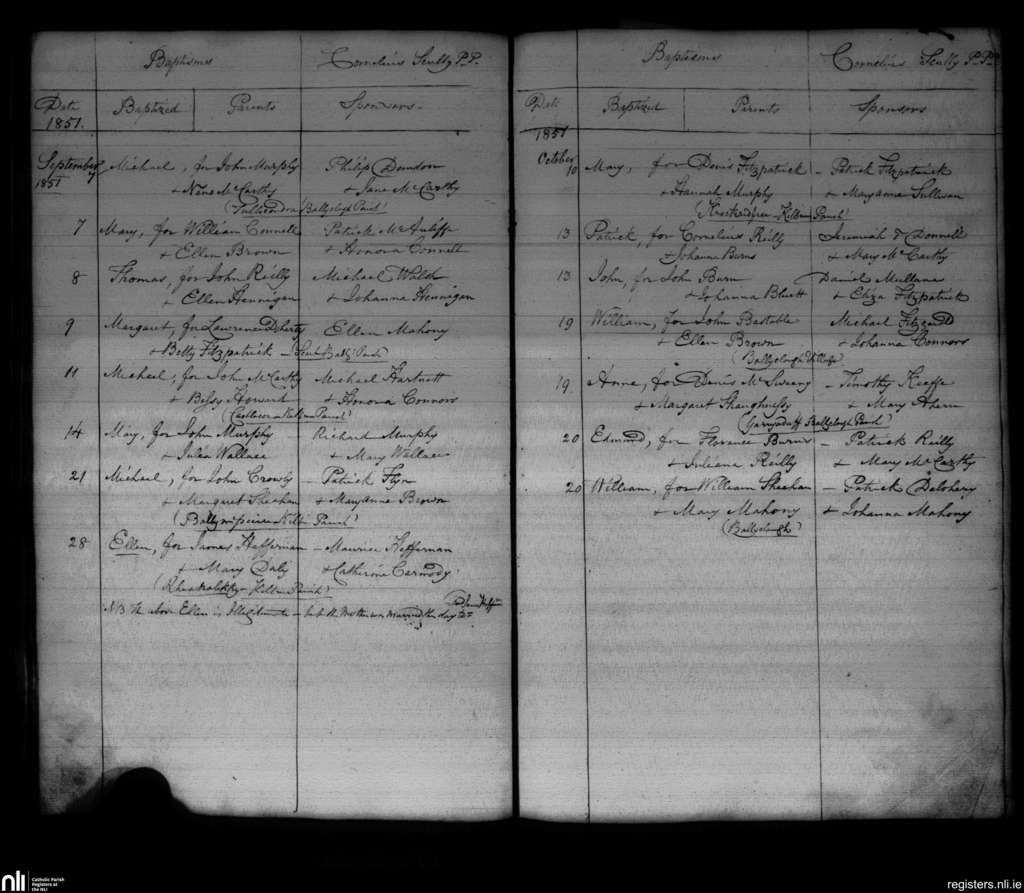 Baptisms Cornelius Scully P.P.
Date Baptized Parents Sponsors
1851.
September Michael, for John Murphy Philip Dondon
1851 7 & Nano McCarthy & Jane McCarthy
(Tullicondra Ballyclogh Parish)
7 Mary, for William Connell Patrick McAuliffe
& Ellen Brown & Honora Connell
8 Thomas, for John Reilly Michael Walsh
& Ellen Hennigan & Johanna Hennigan
9 Margaret, for Lawrence Doherty Ellen Mahony
& Betty Fitzpatrick
11 Michael, for John McCarthy Michael Hartnett
& Bessy Howard & Honora Connors
Parish)
14 Mary, for John Murphy Richard Murphy
& Julea Wallace & Mary Wallace
21 Michael, for John Crowly - Patrick Flyn
& Margaret Sheehan & Maryanne Brown
Parish)
28 Ellen, for James Heffernan - Maurice Heffernan
& Mary Daly & Catherine Carmody
Parish)
NB the above Ellen is Illegitimate - but the Mother was married
Baptisms Cornelius Scully P.P.
Date Baptized Parents Sponsors
1851
October 10 Mary, for Denis Fitzpatrick - Patrick Fitzpatrick
& Hannah Murphy & Maryanne Sullivan
Parish)
13 Patrick, for Cornelius Reilly Jeremiah O Donnell
& Johanna Burns & Mary McCarthy
13 John, for John Burn Daniel Mullane
& Johanna Bluett & Eliza Fitzpatrick
19 William, for John Bastable Michael Fitzgerald
& Ellen Brown & Johanna Connors
(Ballyclough Village)
19 Anne, for Denis McSweeny - Timothy Keeffe
& Margaret Shaughnessy & Mary Ahern
(Garryduff Ballyclogh Parish)
20 Edmund, for Florance Burns - Patrick Reilly
& Juliana Reilly & Mary McCarthy
20 William, for William Sheehan - Patrick Delohery
& Mary Mahony & Johanna Mahony
(Ballyclough)
nli Catholic Parish
Registers at
the NLI
registers.nli.ie